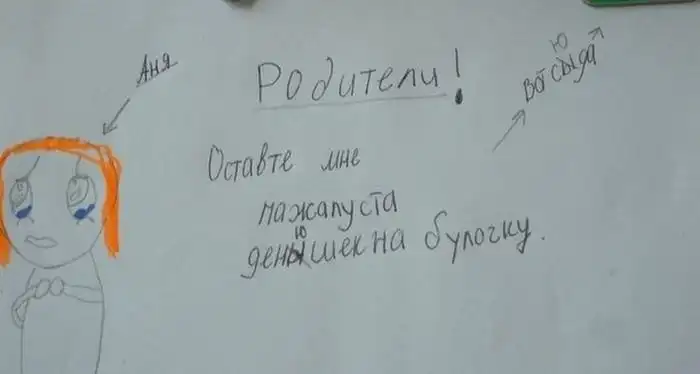 Аня
Родители!
Вот сыда
ю
Оставте мне
пажалуста
денышек на булочку.
ю